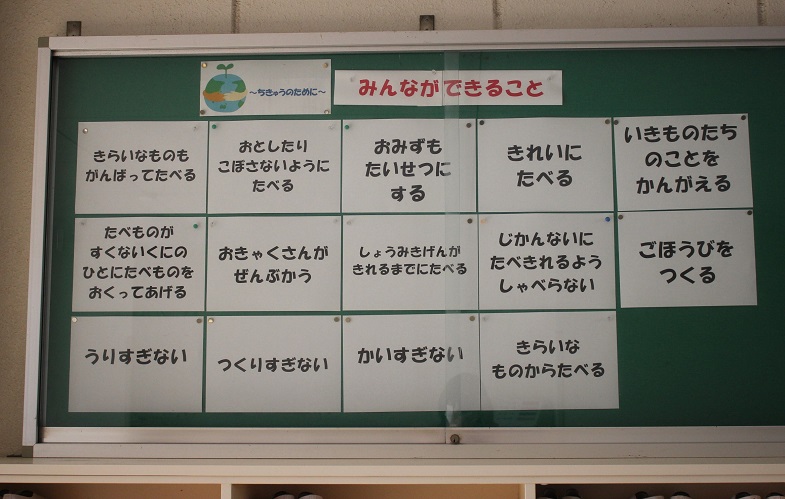 ～ちきゅうのために～
みんなができること
きらいなものも
がんばってたべる
おとしたり
こぼさないように
たべる
おみずも
たいせつに
する
きれいに
たべる
いきものたち
のことを
かんがえる
たべものが
すくないくにの
ひとにたべものを
おくってあげる
おきゃくさんが
ぜんぶかう
しょうみきげんが
きれるまでにたべる
じかんないに
たべきれるよう
しゃべらない
ごほうびを
つくる
うりすぎない
つくりすぎない
かいすぎない
きらいな
ものからたべる